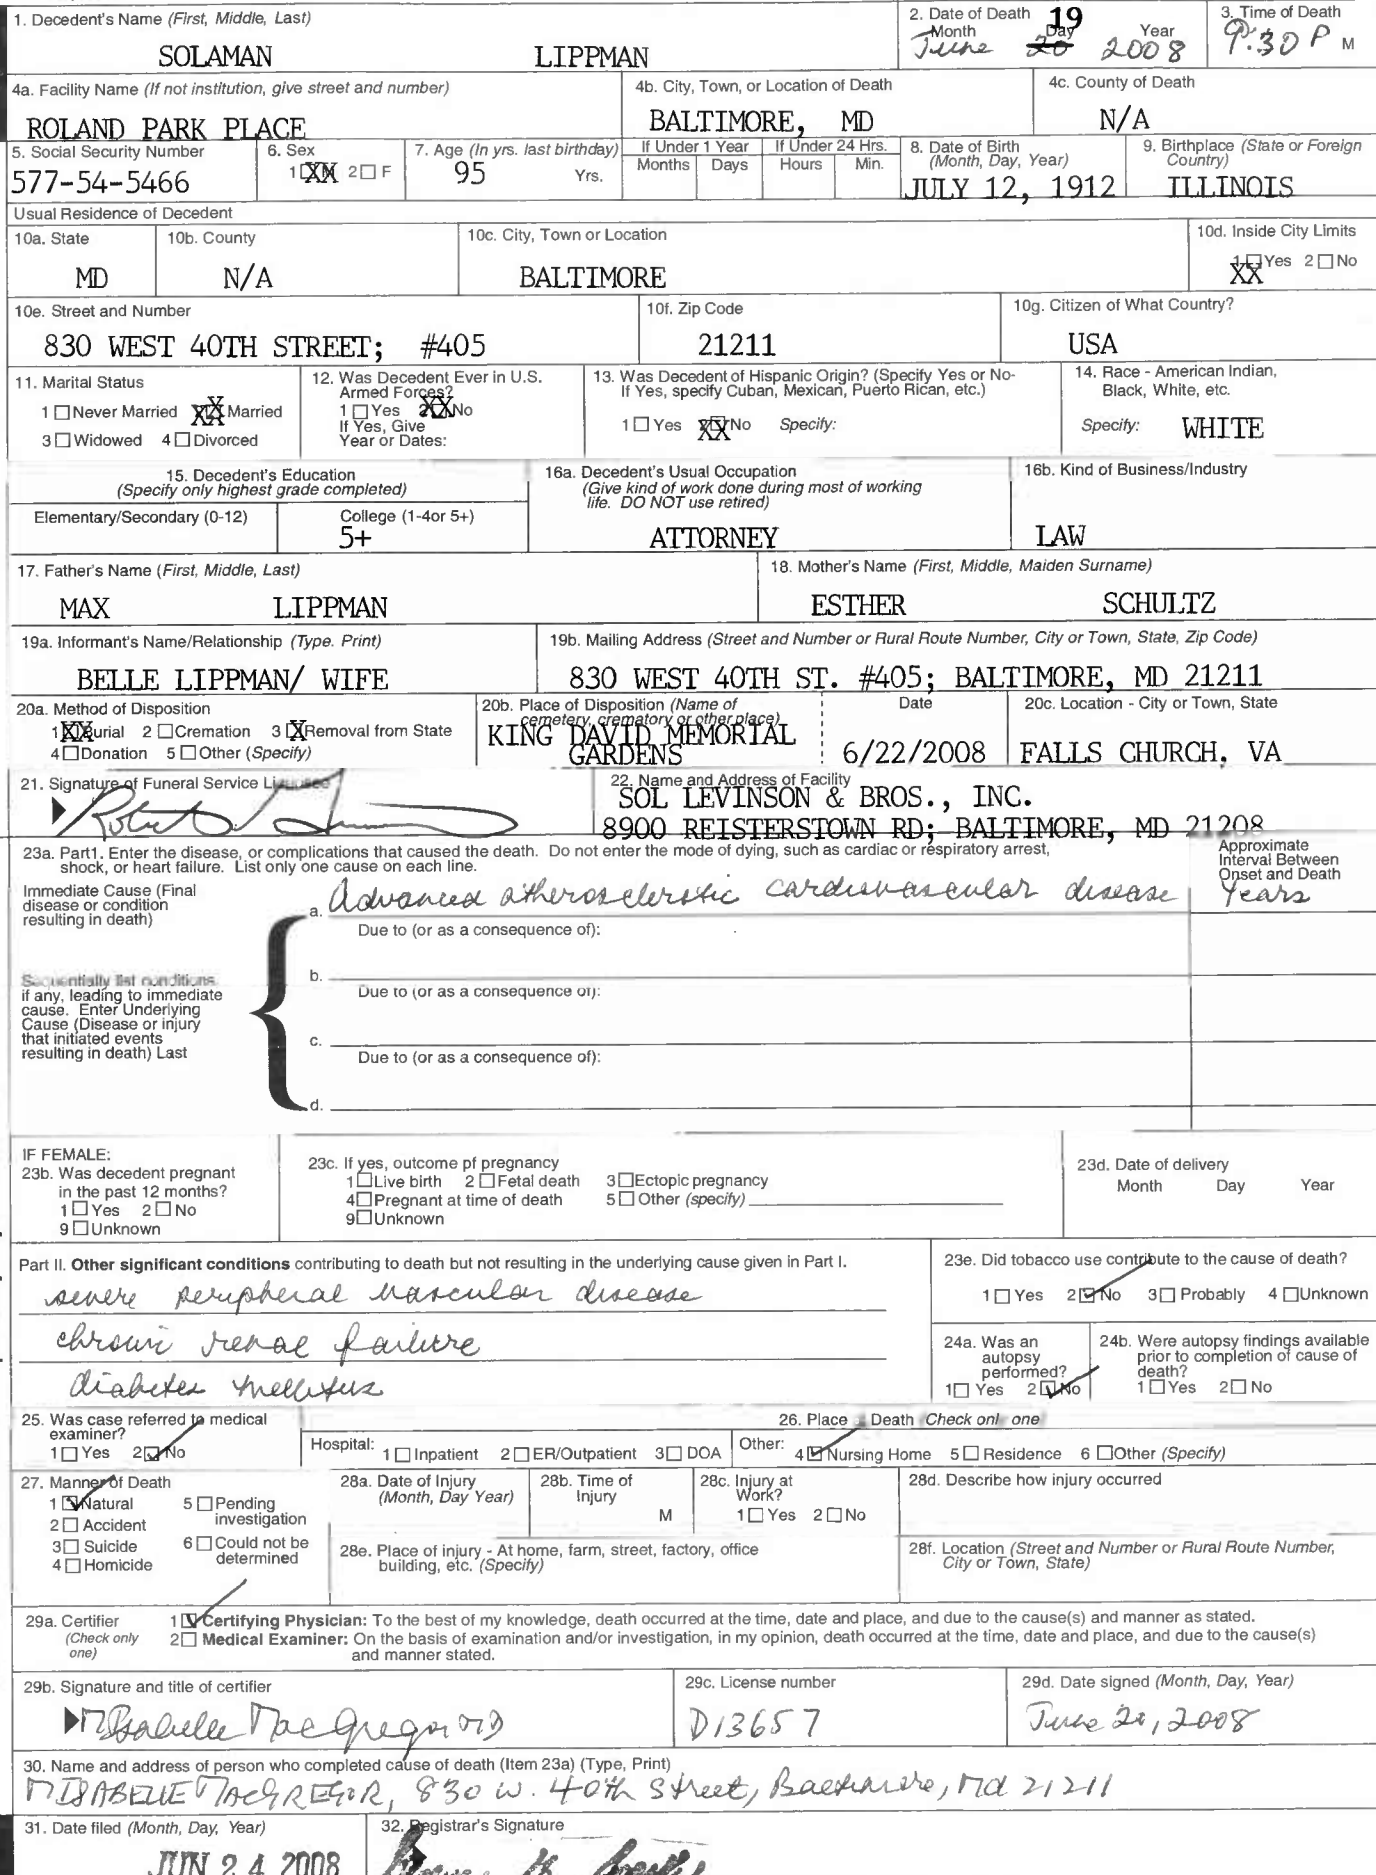 1. Decedent's Name (First, Middle, Last)
SOLAMAN LIPPMAN
2. Date of Death
Month Day Year
June 20 19 2008
3. Time of Death
9:30 P M
4a. Facility Name (If not institution, give street and number)
ROLAND PARK PLACE
4b. City, Town, or Location of Death
BALTIMORE, MD
4c. County of Death
N/A
5. Social Security Number
577-54-5466
6. Sex
1 XX 2 F
7. Age (In yrs. last birthday)
95 Yrs.
If Under 1 Year
Months Days
If Under 24 Hrs.
Hours Min.
8. Date of Birth
(Month, Day, Year)
JULY 12, 1912
9. Birthplace (State or Foreign
Country)
ILLINOIS
Usual Residence of Decedent
10a. State
MD
10b. County
N/A
10c. City, Town or Location
BALTIMORE
10d. Inside City Limits
1 Yes 2 No
XX
10e. Street and Number
830 WEST 40TH STREET; #405
10f. Zip Code
21211
10g. Citizen of What Country?
USA
11. Marital Status
1 Never Married XX Married
3 Widowed 4 Divorced
12. Was Decedent Ever in U.S.
Armed Forces?
1 Yes 2 XX No
If Yes, Give
Year or Dates:
13. Was Decedent of Hispanic Origin? (Specify Yes or No-
If Yes, specify Cuban, Mexican, Puerto Rican, etc.)
1 Yes XX No Specify:
14. Race - American Indian,
Black, White, etc.
Specify: WHITE
15. Decedent's Education
(Specify only highest grade completed)
Elementary/Secondary (0-12)
College (1-4or 5+)
5+
16a. Decedent's Usual Occupation
(Give kind of work done during most of working
life. DO NOT use retired)
ATTORNEY
16b. Kind of Business/Industry
LAW
17. Father's Name (First, Middle, Last)
MAX LIPPMAN
18. Mother's Name (First, Middle, Maiden Surname)
ESTHER SCHULTZ
19a. Informant's Name/Relationship (Type. Print)
BELLE LIPPMAN/ WIFE
19b. Mailing Address (Street and Number or Rural Route Number, City or Town, State, Zip Code)
830 WEST 40TH ST. #405; BALTIMORE, MD 21211
20a. Method of Disposition
1 XX Burial 2 Cremation 3 X Removal from State
4 Donation 5 Other (Specify)
20b. Place of Disposition (Name of
cemetery, crematory or other place)
KING DAVID MEMORIAL
GARDENS
Date
6/22/2008
20c. Location - City or Town, State
FALLS CHURCH, VA
21. Signature of Funeral Service Licensee
22. Name and Address of Facility
SOL LEVINSON & BROS., INC.
8900 REISTERSTOWN RD; BALTIMORE, MD 21208
23a. Part1. Enter the disease, or complications that caused the death. Do not enter the mode of dying, such as cardiac or respiratory arrest,
shock, or heart failure. List only one cause on each line.
Approximate
Interval Between
Onset and Death
Immediate Cause (Final
disease or condition
resulting in death)
a. Advanced atherosclerotic cardiovascular disease Years
Due to (or as a consequence of):
Sequentially list conditions
if any, leading to immediate
cause. Enter Underlying
Cause (Disease or injury
that initiated events
resulting in death) Last
b.
Due to (or as a consequence of):
c.
Due to (or as a consequence of):
d.
IF FEMALE:
23b. Was decedent pregnant
in the past 12 months?
1 Yes 2 No
9 Unknown
23c. If yes, outcome pf pregnancy
1 Live birth 2 Fetal death 3 Ectopic pregnancy
4 Pregnant at time of death 5 Other (specify)
9 Unknown
23d. Date of delivery
Month Day Year
Part II. Other significant conditions contributing to death but not resulting in the underlying cause given in Part I.
severe peripheral vascular disease
chronic renal failure
diabetes mellitus
23e. Did tobacco use contribute to the cause of death?
1 Yes 2 No 3 Probably 4 Unknown
24a. Was an
autopsy
performed?
1 Yes 2 No
24b. Were autopsy findings available
prior to completion of cause of
death?
1 Yes 2 No
25. Was case referred to medical
examiner?
1 Yes 2 No
26. Place Death Check onl one
Hospital: 1 Inpatient 2 ER/Outpatient 3 DOA
Other: 4 Nursing Home 5 Residence 6 Other (Specify)
27. Manner of Death
1 Natural 5 Pending
investigation
2 Accident
3 Suicide 6 Could not be
determined
4 Homicide
28a. Date of Injury
(Month, Day Year)
28b. Time of
Injury
M
28c. Injury at
Work?
1 Yes 2 No
28d. Describe how injury occurred
28e. Place of injury - At home, farm, street, factory, office
building, etc. (Specify)
28f. Location (Street and Number or Rural Route Number,
City or Town, State)
29a. Certifier
(Check only
one)
1 Certifying Physician: To the best of my knowledge, death occurred at the time, date and place, and due to the cause(s) and manner as stated.
2 Medical Examiner: On the basis of examination and/or investigation, in my opinion, death occurred at the time, date and place, and due to the cause(s)
and manner stated.
29b. Signature and title of certifier
M Isabelle MacGregor MD
29c. License number
D13657
29d. Date signed (Month, Day, Year)
June 20, 2008
30. Name and address of person who completed cause of death (Item 23a) (Type, Print)
M ISABELLE MACGREGOR, 830 W. 40th Street, Baltimore, Md 21211
31. Date filed (Month, Day, Year)
JUN 24 2008
32. Registrar's Signature